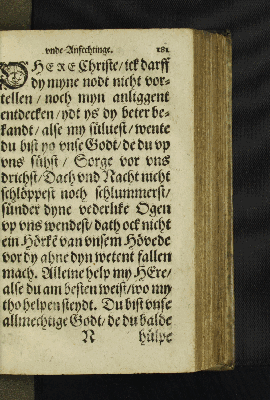 vnde Anfechtinge. 181
O HERE Christe/ ick darff
dy myne nodt nicht vor-
tellen/ noch myn anliggent
entdecken/ ydt ys dy beter be-
kandt/ alse my sülvest/ wente
du bist yo vnse Godt/ de du vp
vns sühst/ Sorge vor vns
drichst/ Dach vnd Nacht nicht
schlöppest noch schlummerst/
sünder dyne vederlike Ogen
vp vns wendest/ dath ock nicht
ein Hörke van vnsem Hövede
vor dy ahne dyn wetent fallen
mach. Alleine help my HEre/
alse du am besten weist/ wo my
tho helpen steydt. Du bist vnse
allmechtige Godt/ de du balde
N hülpe